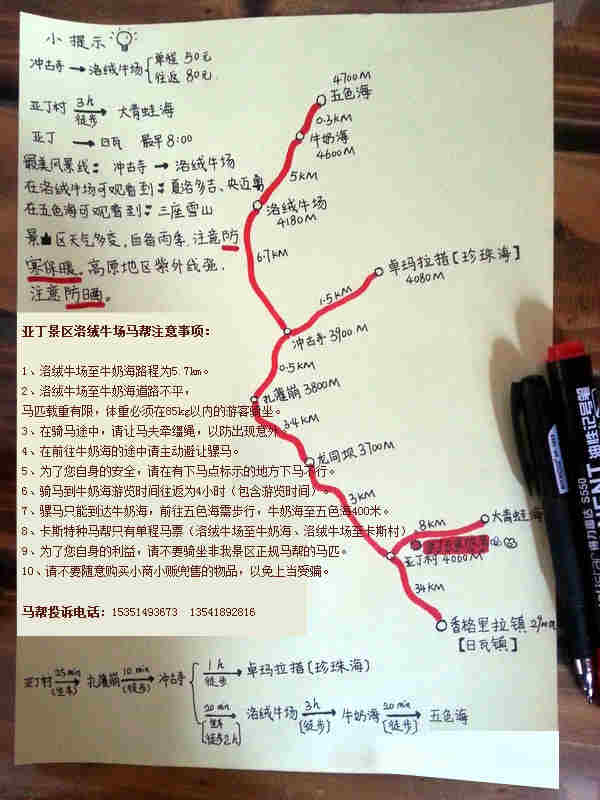 小提示
冲古寺 → 洛绒牛场 单程 50元
往返 80元
亚丁村 3h 徒步 → 大青蛙海
亚丁 → 日瓦 最早 8:00
最美风景线: 冲古寺 → 洛绒牛场
在洛绒牛场可观看到: 夏洛多吉、央迈勇
在五色海可观看到: 三座雪山
景区天气多变,自备雨季,注意防
寒保暖。高原地区紫外线强,
注意防晒。
4700M
五色海
0.3KM
牛奶海
4600M
5KM
洛绒牛场
4180M
6.7KM
卓玛拉措[珍珠海]
4080M
1.5KM
冲古寺 3900M
0.5KM
扎灌崩 3800M
34KM
龙同坝 3700M
3KM
8KM
大青蛙海
亚丁村 4060M
34KM
香格里拉镇
[日瓦镇]
亚丁景区洛绒牛场马帮注意事项:
1、洛绒牛场至牛奶海路程为5.7km。
2、洛绒牛场至牛奶海道路不平,
马匹载重有限,体重必须在85kg以内的游客骑坐。
3、在骑马途中,请让马夫牵缰绳,以防出现意外
4、在前往牛奶海的途中请主动避让骡马。
5、为了您自身的安全,请在有下马点标示的地方下马步行。
6、骑马到牛奶海游览时间往返为4小时(包含游览时间)。
7、骡马只能到达牛奶海,前往五色海需步行,牛奶海至五色海400米。
8、卡斯特种马帮只有单程马票(洛绒牛场至牛奶海、洛绒牛场至卡斯村)
9、为了您自身的利益,请不要骑坐非我景区正规马帮的马匹。
10、请不要随意购买小商小贩兜售的物品,以免上当受骗。
马帮投诉电话: 15351493673 13541892816
亚丁村 25min (坐车) → 扎灌崩 10min (徒步) → 冲古寺
1h 徒步 → 卓玛拉措(珍珠海)
20min [坐车 徒步2h] → 洛绒牛场 3h (徒步) → 牛奶海 20min (徒步) → 五色海
油性记号笔
S550